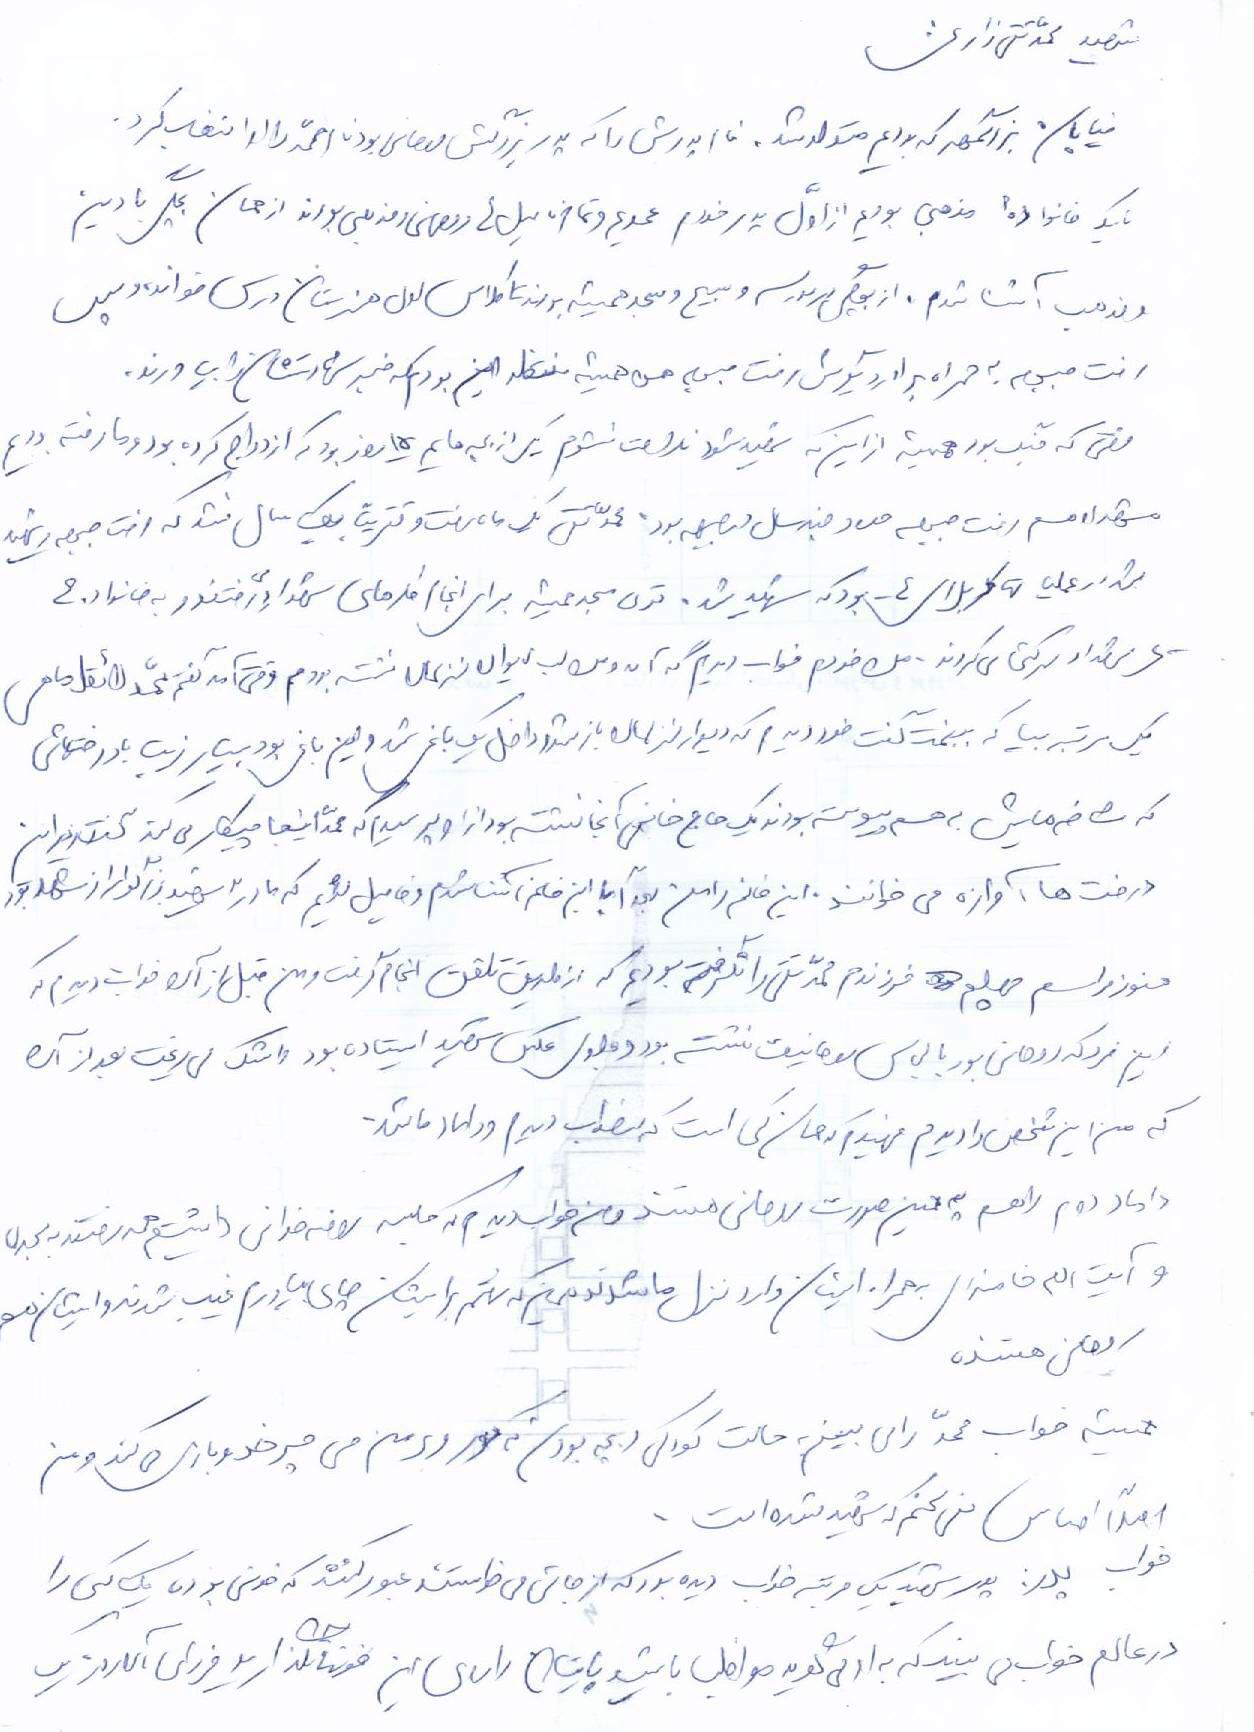 شهید محمد تقی زارعی
خیابان بزرگمهر که بودیم متولد شد. نام پدرش را که پدر بزرگش روحانی بودند احمد را انتخاب کرد.
یک خانواده مذهبی بودیم از اول پدر خودم عمویم و تمام فامیل روحانی و مذهبی بودند از همان بچگی با دین
و مذهب آشنا شدم. از بچگی مدرسه و بسیج و مسجد همیشه بودند تا کلاس اول هنرستان درس خوانده و سپس
رفت جبهه به همراه برادر دیگرش رفت جبهه من همیشه منتظر این بودم که خبر شهادتشان را بیاورند.
وقتی که قبل بود همیشه از این که شهید شود ناراحت نشوم یکی از بچه هایم روز بود که ازدواج کرده بود و ما رفته بودیم
مشهد او هم رفت جبهه حدود چند سال در جبهه بود. محمد تقی یک ماه رفت و تقریبا یک سال نشد که رفت جبهه و شهید
شد در عملیات کربلای ۴ بود که شهید شد. توی مسجد همیشه برای انجام کارهای شهدا می رفتند و به خانواده
های شهدا سرکشی می کردند. من خودم خواب دیدم که آمد و من لب ایوان منزلمان نشسته بودم وقتی آمد گفتم محمد لااقل ماهی
یک مرتبه بیا که ببینمت گفت خود دیدم که دیوار منزلمان باز شد و داخل یک باغی شد و این باغ بود بسیار زیبا با درختهایی
که شاخه هایش به هم پیوسته بودند یک حاج خانمی آنجا نشسته بود از او پرسیدم که محمد اینجا چیکار می کند گفت زیر این
درخت ها آوازه می خوانند. این خانم را من بعداً با این خانم آشنا شدم و فامیل شدیم که مادر شهید بزرگوار از شهدا بود
هنوز مراسم چهلم فرزندم محمد تقی را نگرفته بودیم که از طریق تلفن انجام گرفت و من قبل از آن خواب دیدم که
این فرد که روحانی بود با لباس روحانیت نشسته بود و جلوی عکس شهید ایستاده بود و اشک می ریخت بعد از آن
که من این شخص را دیدم فهمیدم که همان کسی است که خواب دیدم و داماد ما شد.
داماد دوم را هم به همین صورت روحانی هستند و من خواب دیدم که جلسه روضه خوانی داشتیم همه رفتند
و آیت اله خامنه ای به همراه ایشان وارد منزل ما شدند و همین که رفتم برایشان چای بیاورم غیب شدند و ایشان هم
روحانی هستند.
همیشه خواب محمد را می بینم به حالت کودکی و بچه بودن که دور و بر من می چرخد و بازی می کند و من
اصلاً احساس نمی کنم که شهید شده است.
خواب پدر: پدر شهید یک مرتبه خواب دیده بود که از جائی می خواستند عبور کنند که خونی بوده یک کسی را
در عالم خواب می بیند که به او می گوید مواظب باشید پایتان را روی این خونها نگذارید فردای آن روز یک